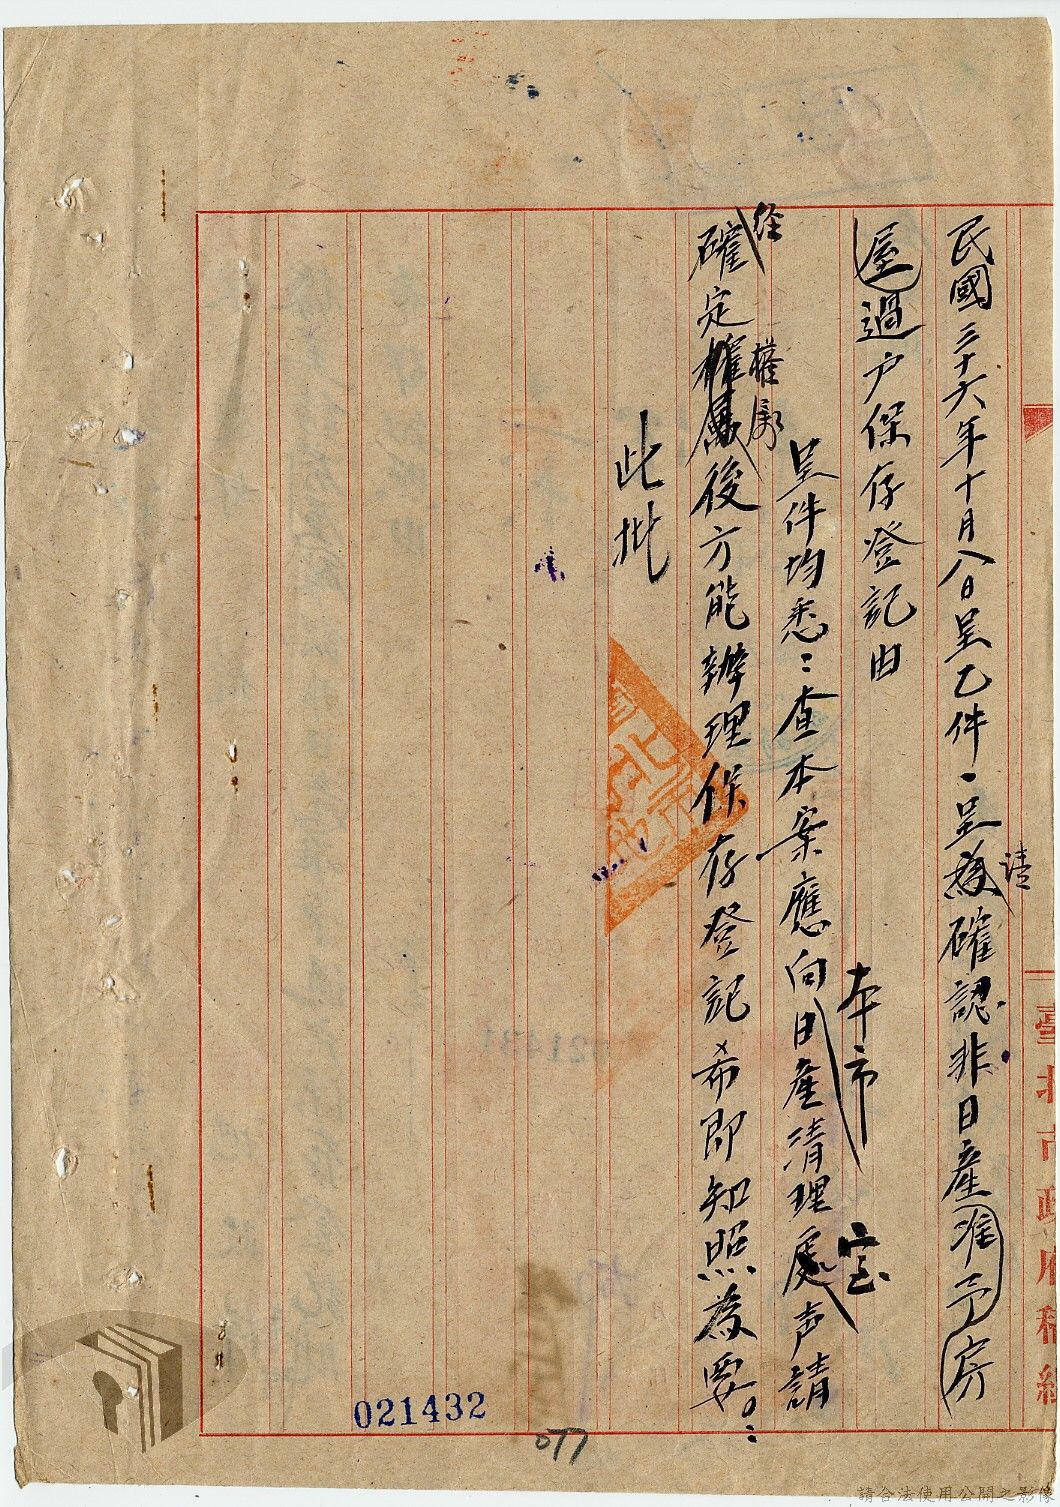 民國三十六年十月八日呈乙件、呈請確認非日產准予房
屋過户保存登記由
呈件均悉：查本案應向日產清理處声請
本市
室
確定權屬後方能辦理保存登記希即知照為要。：
経
權屬
此批
臺北市政府稿紙
021432
077
請合法使用公開之影像